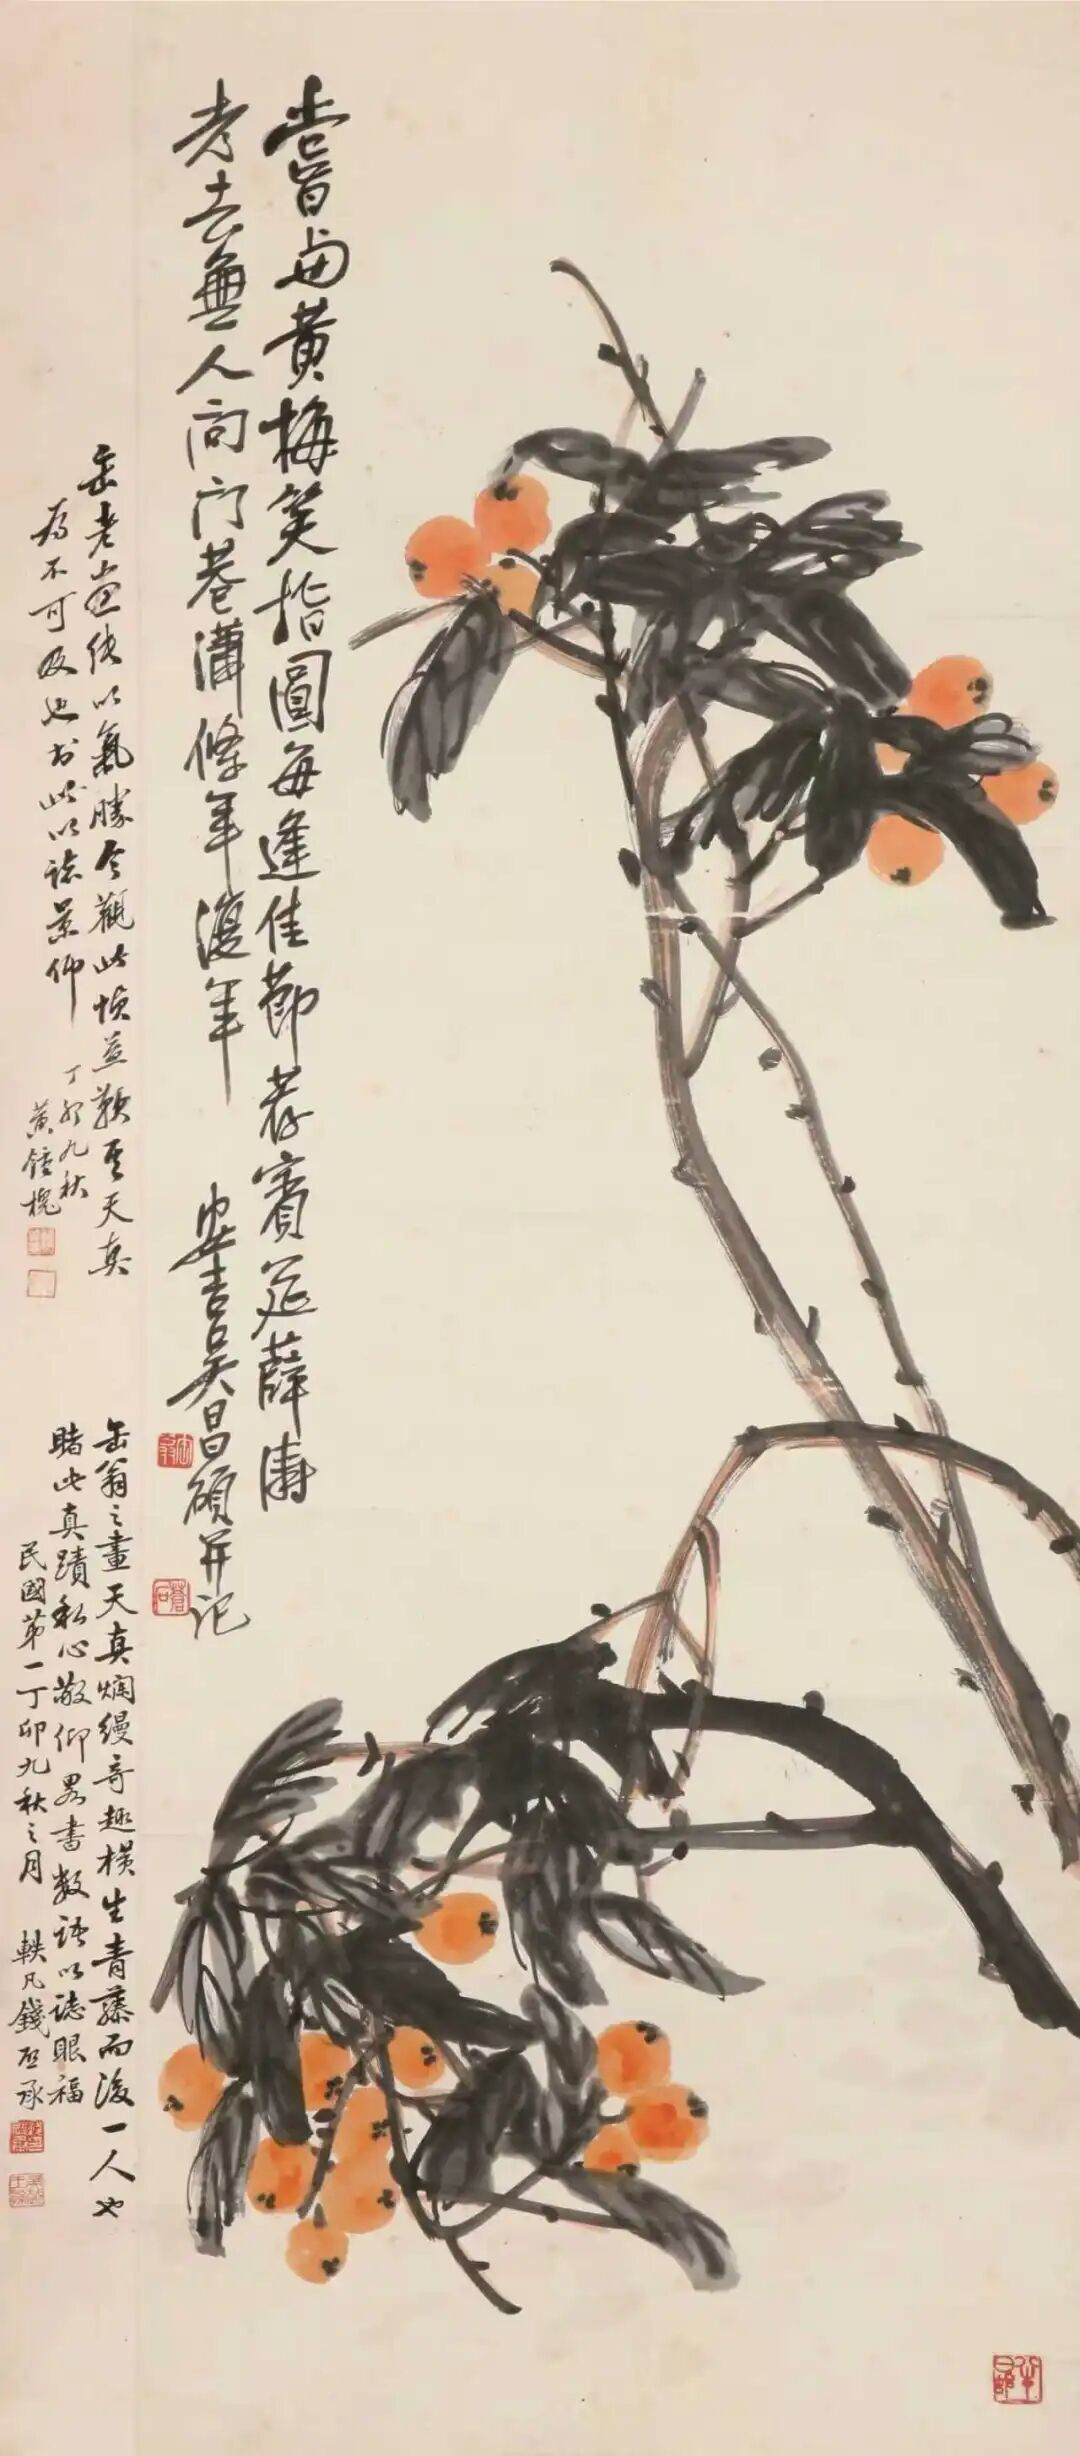 嘗盡黃梅笑指圓每逢佳節荐賓筵薛濤
老去無人問門巷瀟條年復年
安吉吳昌碩并記
缶老畫俱以氣勝今觀此幀益歎其天真
為不可及也書此以誌景仰
丁卯九秋
黃鍾槐
缶翁之畫天真爛縵奇趣橫生青藤而後一人也
睹此真蹟私心敬仰畧書數語以誌眼福
民國第一丁卯九秋之月
軼凡錢